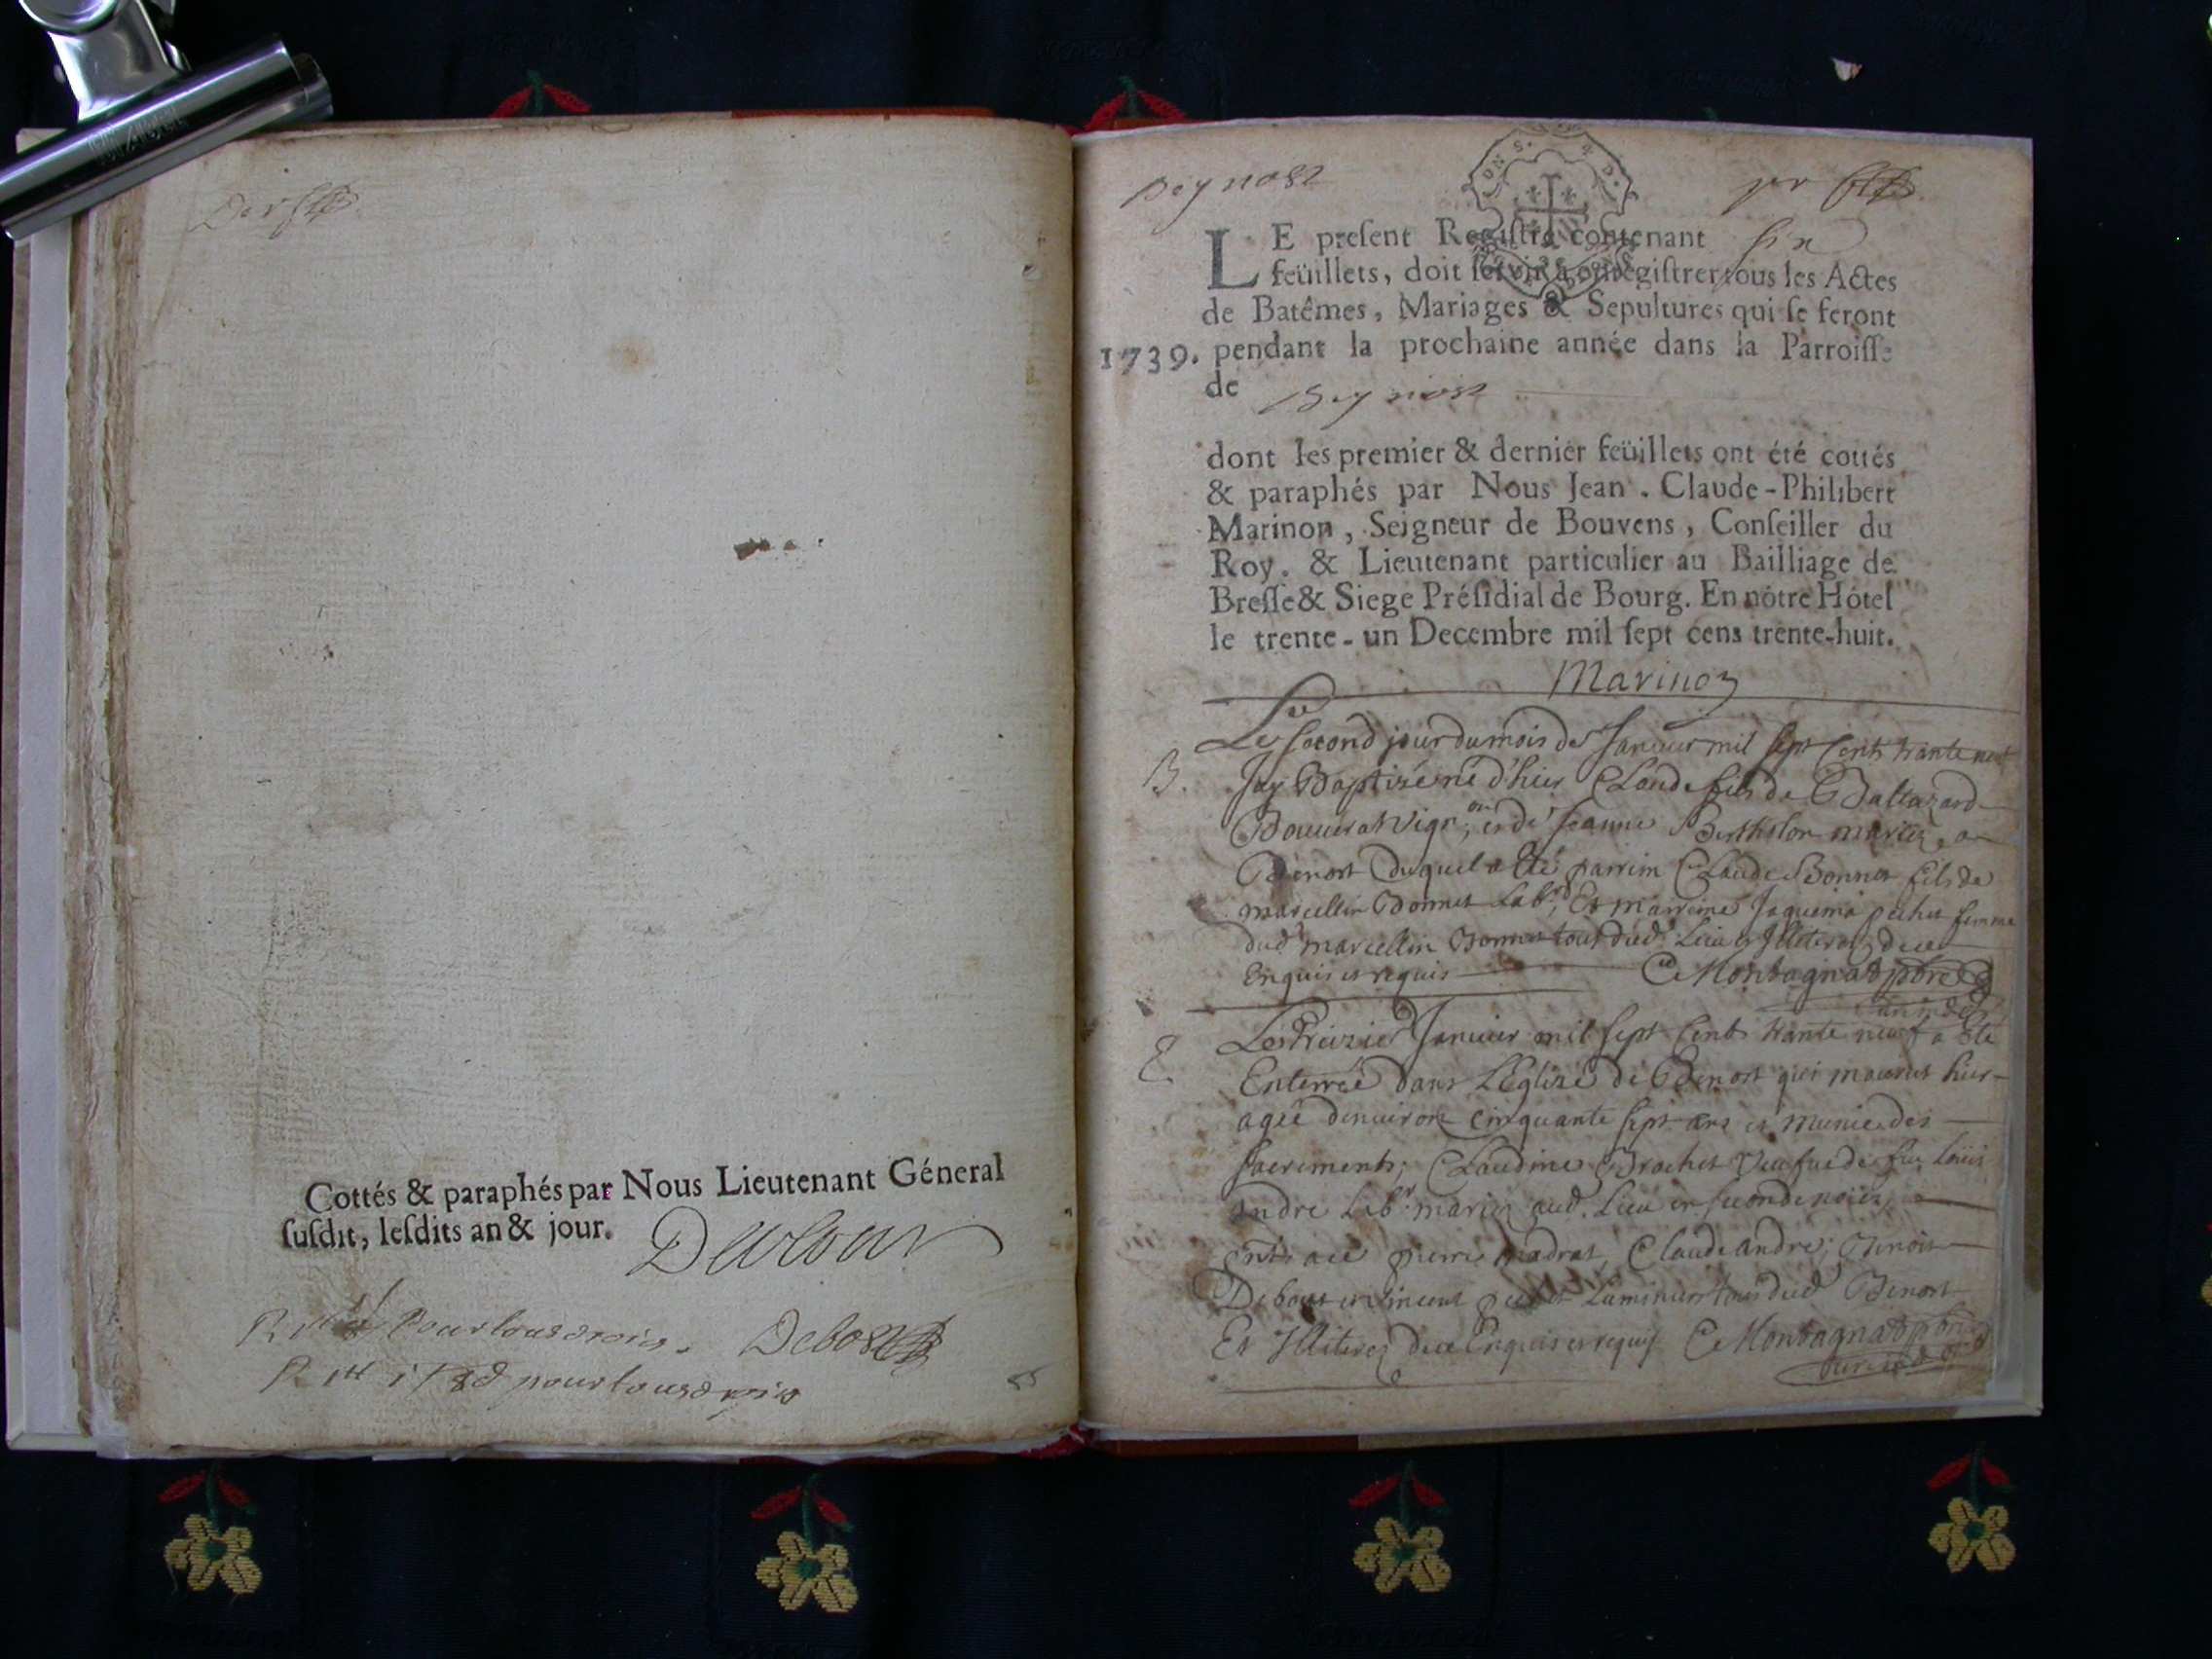 Cottés & paraphés par Nous Lieutenant Géneral
ſuſdit, leſdits an & jour.
pour tous droits. Debost
pour tous droits
Beynost
1739.
LE preſent Regiſtre contenant six
feüillets, doit ſervir à enregiſtrer tous les Actes
de Batêmes, Mariages & Sepultures qui ſe feront
pendant la prochaine année dans la Parroiſſe
de Beynost
dont les premier & dernier feüillets ont été cottés
& paraphés par Nous Jean-Claude-Philibert
Marinon, Seigneur de Bouvens, Conſeiller du
Roy, & Lieutenant particulier au Bailliage de
Breſſe & Siege Préſidial de Bourg. En nôtre Hôtel
le trente-un Decembre mil ſept cens trente-huit.
Marinon
Le second jour du mois de Janvier mil sept cents trante neuf
B. Jay Baptizé né d'hier Claude fils de Baltazard
Vign.on et de Jeanne Berthelon mariez a
Benost duquel a été parrim Claude Bonnet fils de
marcellin Bonnet Lab.r, Et marreine Jaquema pechet femme
dud marcellin Bonnet tous dud. Lieu Illiterez de ce
Enquis et requis C Montagnad pbre
E. Le treizie Janvier mil sept cents trante neuf a ete
Enterrée dans L'Eglize de Benost qui mourut hier
agée denuiron cinquante sept ans et munie des
sacrements, Claudine Brochet Veufue de feu Louis
Andre Lab.r mariez aud. Lieu en seconde noces,
pnts a ce pierre madras, Claude andre, Benoit
Debost et vincent pechet Luminier tous dud Benost
Et Illiterez de ce Enquis et requis C Montagnad pbre